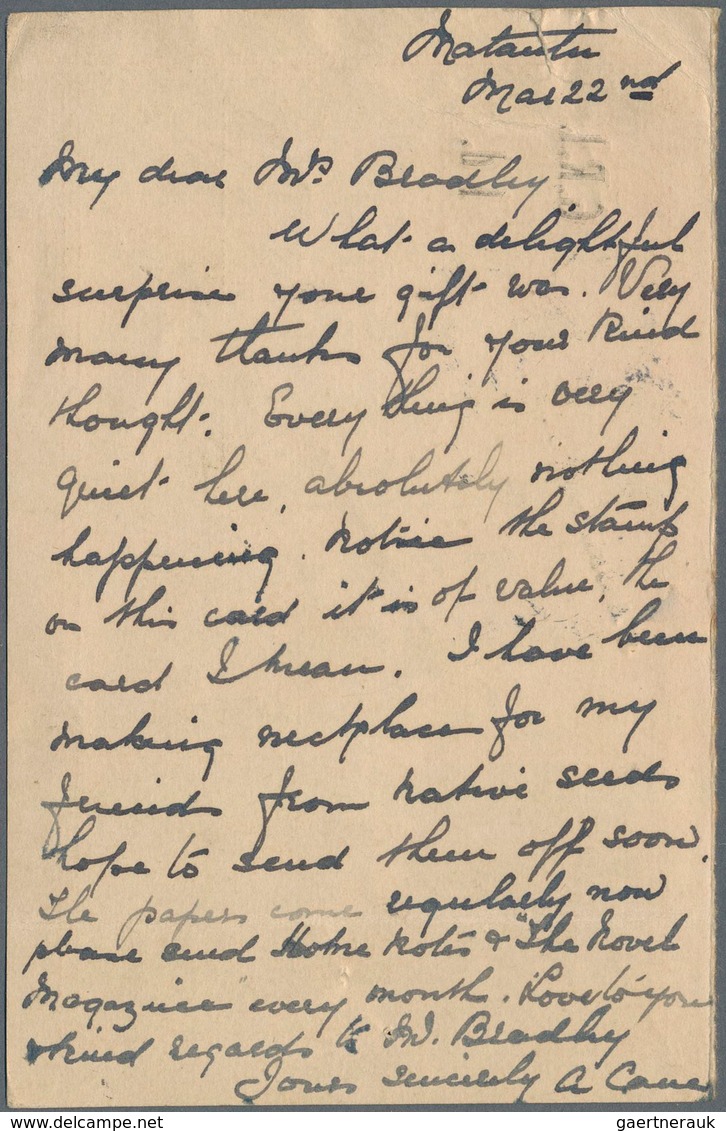 Matautu
Mar 22nd
My dear Mrs Bradley.
What a delightful
surprise your gift was. Very
many thanks for your kind
thought. Every thing is very
quiet here, absolutely nothing
happening. Notice the stamp
on this card it is of value, the
card I mean. I have been
making neckplace for my
friends from native seeds
hope to send them off soon.
The papers come regularly now
please send Home Notes & "The Novel
Magazine" every month. Love to you
& kind regards to Mr. Bradley
Yours sincerely A Cane
gaertnerauk